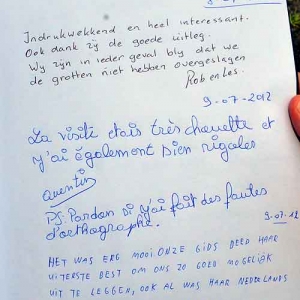 Indrukwekkend en heel interessant.
Ook dank zij de goede uitleg.
Wij zijn in ieder geval blij dat we
de grotten niet hebben overgeslagen
Rob en Les.
9-07-2012
La visite étais très chouette et
j'ai également bien rigoles
Quentin
PS: Pardon si j'ai fait des fautes
d'orthographe.
9.07.12
HET WAS ERG MOOI ONZE GIDS DEED HAAR
UITERSTE BEST OM ONS ZO GOED MOGELIJK
UIT TE LEGGEN, OOK AL WAS HAAR NEDERLANDS